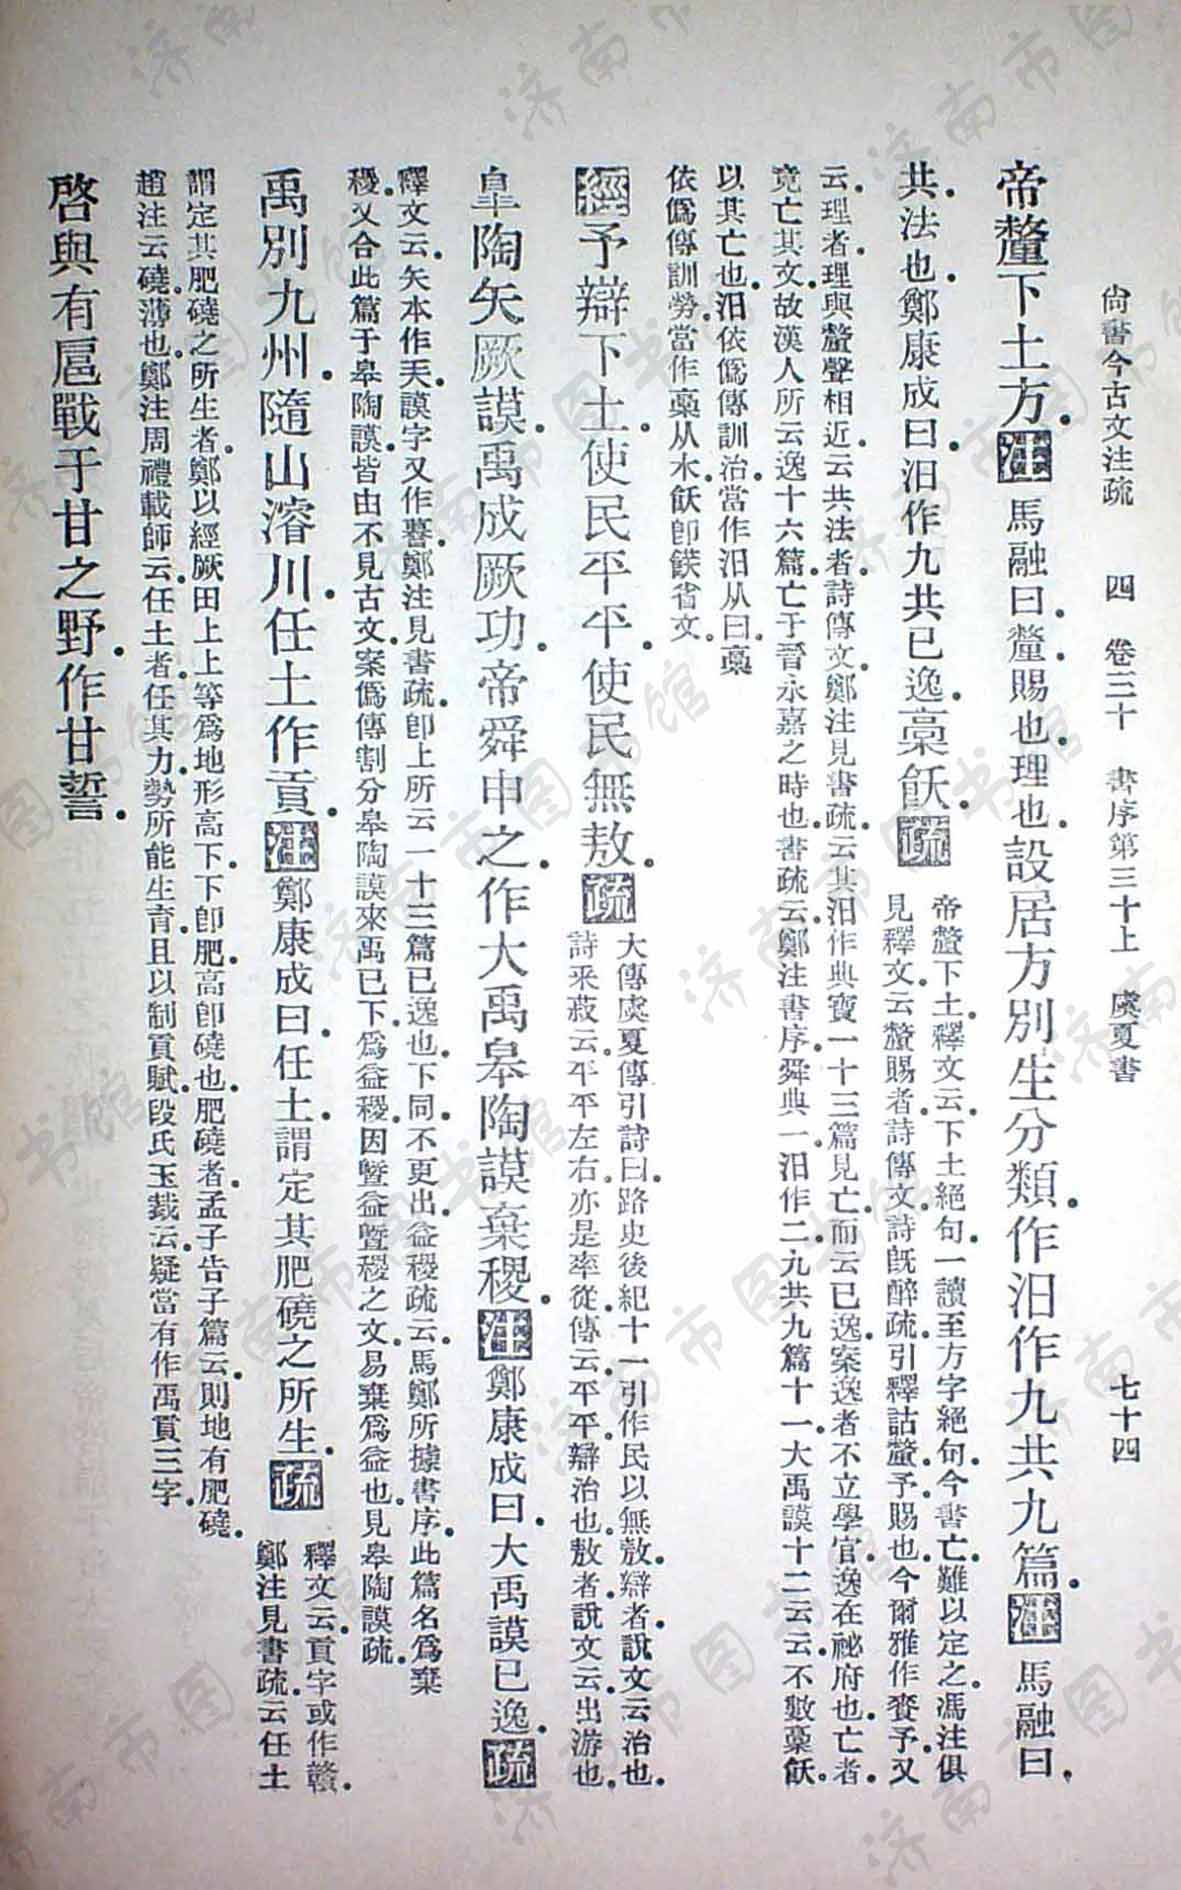 尙書今古文注疏　四　卷三十　書序第三十上　虞夏書　七十四
帝釐下土方。注馬融曰。釐。賜也。理也。設居方別生分類。作汨作九共九篇。注馬融曰。
共。法也。鄭康成曰。汨作九共已逸。稾飫。疏帝釐下土。釋文云。下土絕句。一讀至方字絕句。今書亡。難以定之。馮注俱
見釋文。云釐賜者。詩傳文。詩旣醉疏。引釋詁釐。予。賜也。今爾雅作賚予。又
云。理者。理與釐聲相近。云共法者。詩傳文。鄭注見書疏。云其汨作典寶一十三篇見亡。而云已逸。案逸者不立學官。逸在祕府也。亡者。
竟亡其文。故漢人所云逸十六篇。亡于晉永嘉之時也。書疏云。鄭注書序。舜典一。汨作二。九共九篇十一。大禹謨十二云云。不數稾飫。
以其亡也。汨依僞傳訓治。當作汨从曰。稾
依僞傳訓勞。當作稾从木。飫卽䬸省文。
經予辯下土。使民平平。使民無敖。疏大傳虞夏傳引詩曰。路史後紀十一引作民以無敖。辯者。說文云治也。
詩采菽云。平平左右。亦是率從。傳云。平平。辯治也。敖者。說文云出游也。
皐陶矢厥謨。禹成厥功。帝舜申之。作大禹皋陶謨棄稷。注鄭康成曰。大禹謨已逸。疏
釋文云。矢本作天。謨字又作暮。鄭注見書疏。卽上所云一十三篇已逸也。下同。不更出。益稷疏云。馬鄭所據書序。此篇名爲棄
稷。又合此篇于皋陶謨。皆由不見古文。案僞傳割分皋陶謨來禹已下。爲益稷。因曁益曁稷之文。易棄爲益也。見皋陶謨疏。
禹別九州。隨山濬川。任土作貢。注鄭康成曰。任土。謂定其肥磽之所生。疏釋文云。貢字或作贛。
鄭注見書疏。云任土
謂定其肥磽之所生者。鄭以經厥田上上等爲地形高下。下卽肥。高卽磽也。肥磽者。孟子告子篇云。則地有肥磽。
趙注云。磽。薄也。鄭注周禮載師云。任土者。任其力。勢所能生育。且以制貢賦。段氏玉裁云。疑當有作禹貢三字。
啓與有扈戰于甘之野。作甘誓。